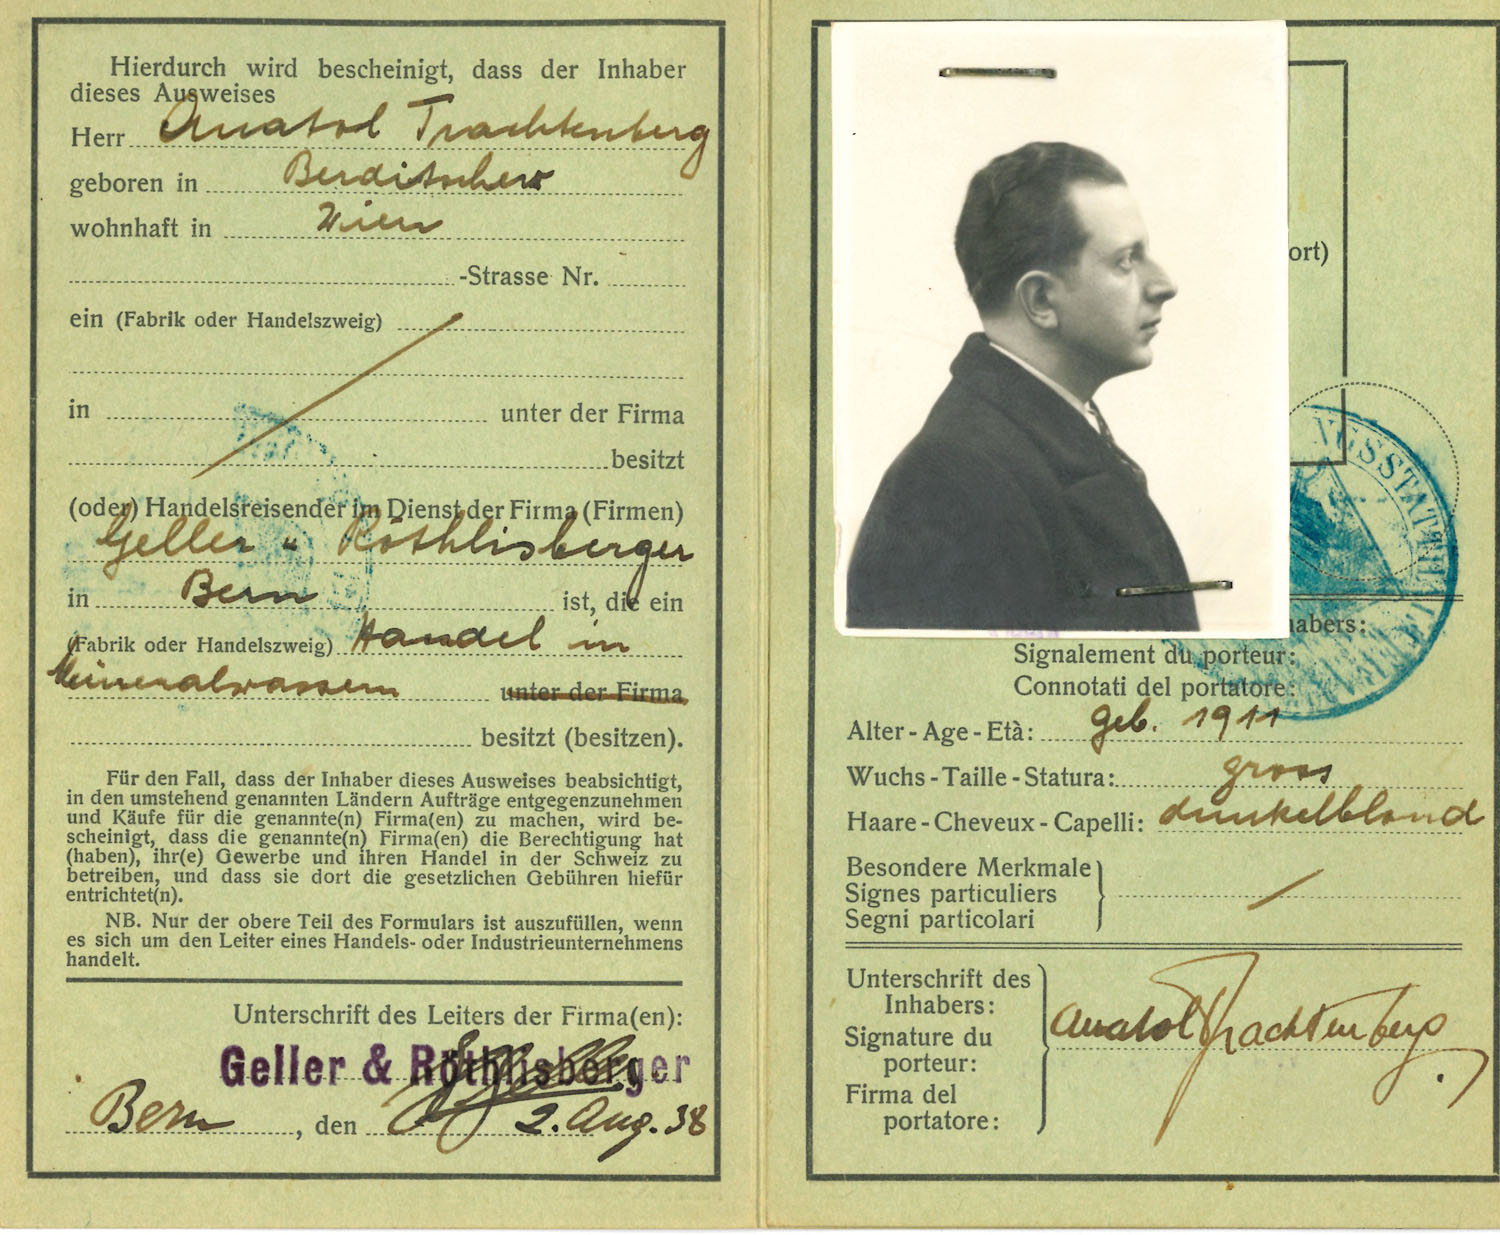 Hierdurch wird bescheinigt, dass der Inhaber
dieses Ausweises
Herr Anatol Trachtenberg
geboren in Berditschew
wohnhaft in Wien
-Strasse Nr.
ein (Fabrik oder Handelszweig)
in unter der Firma
besitzt
(oder) Handelsreisender im Dienst der Firma (Firmen)
Geller u Röthlisberger
in Bern ist, die ein
(Fabrik oder Handelszweig) Handel in
Mineralwassern unter der Firma
besitzt (besitzen).
Für den Fall, dass der Inhaber dieses Ausweises beabsichtigt,
in den umstehend genannten Ländern Aufträge entgegenzunehmen
und Käufe für die genannte(n) Firma(en) zu machen, wird be-
scheinigt, dass die genannte(n) Firma(en) die Berechtigung hat
(haben), ihr(e) Gewerbe und ihren Handel in der Schweiz zu
betreiben, und dass sie dort die gesetzlichen Gebühren hiefür
entrichtet(n).
NB. Nur der obere Teil des Formulars ist auszufüllen, wenn
es sich um den Leiter eines Handels- oder Industrieunternehmens
handelt.
Unterschrift des Leiters der Firma(en):
Geller & Röthlisberger
Bern, den 2. Aug. 38
ort)
habers:
Signalement du porteur:
Connotati del portatore:
Alter - Age - Età: geb. 1911
Wuchs - Taille - Statura: gross
Haare - Cheveux - Capelli: dunkelblond
Besondere Merkmale
Signes particuliers
Segni particolari
Unterschrift des
Inhabers:
Signature du
porteur:
Firma del
portatore:
Anatol Trachtenberg